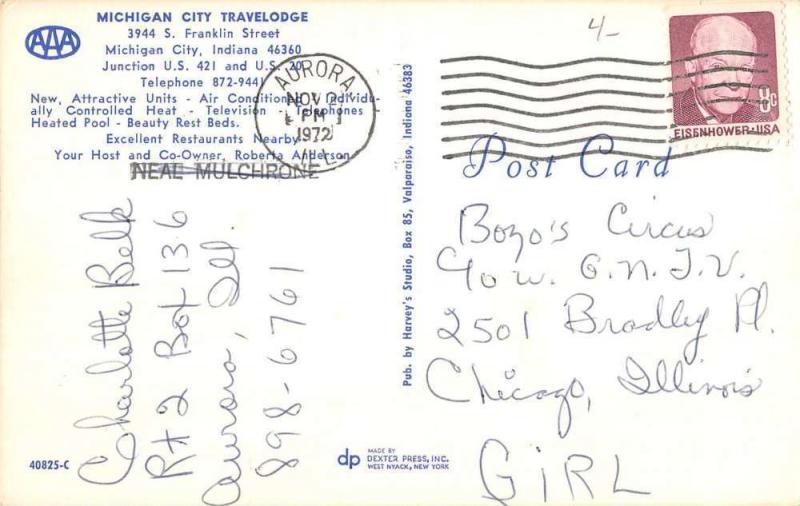 AAA
MICHIGAN CITY TRAVELODGE
3944 S. Franklin Street
Michigan City, Indiana 46360
Junction U.S. 421 and U.S. 20
Telephone 872-9441
New, Attractive Units - Air Conditioned - Individu-
ally Controlled Heat - Television - Telephones
Heated Pool - Beauty Rest Beds.
Excellent Restaurants Nearby
Your Host and Co-Owner, Roberta Anderson
NEAL MULCHRONE
AURORA
NOV
PM
1972
ILL
4-
8c
EISENHOWER·USA
Post Card
Pub. by Harvey's Studio, Box 85, Valparaiso, Indiana 46383
Charlotte Belk
Rt 2 Box 136
Aurora, Ill.
898-6761
Bozo's Circus
% W.G.N.T.V.
2501 Bradley Pl.
Chicago, Illinois
GIRL
40825-C
dp
MADE BY
DEXTER PRESS, INC.
WEST NYACK, NEW YORK